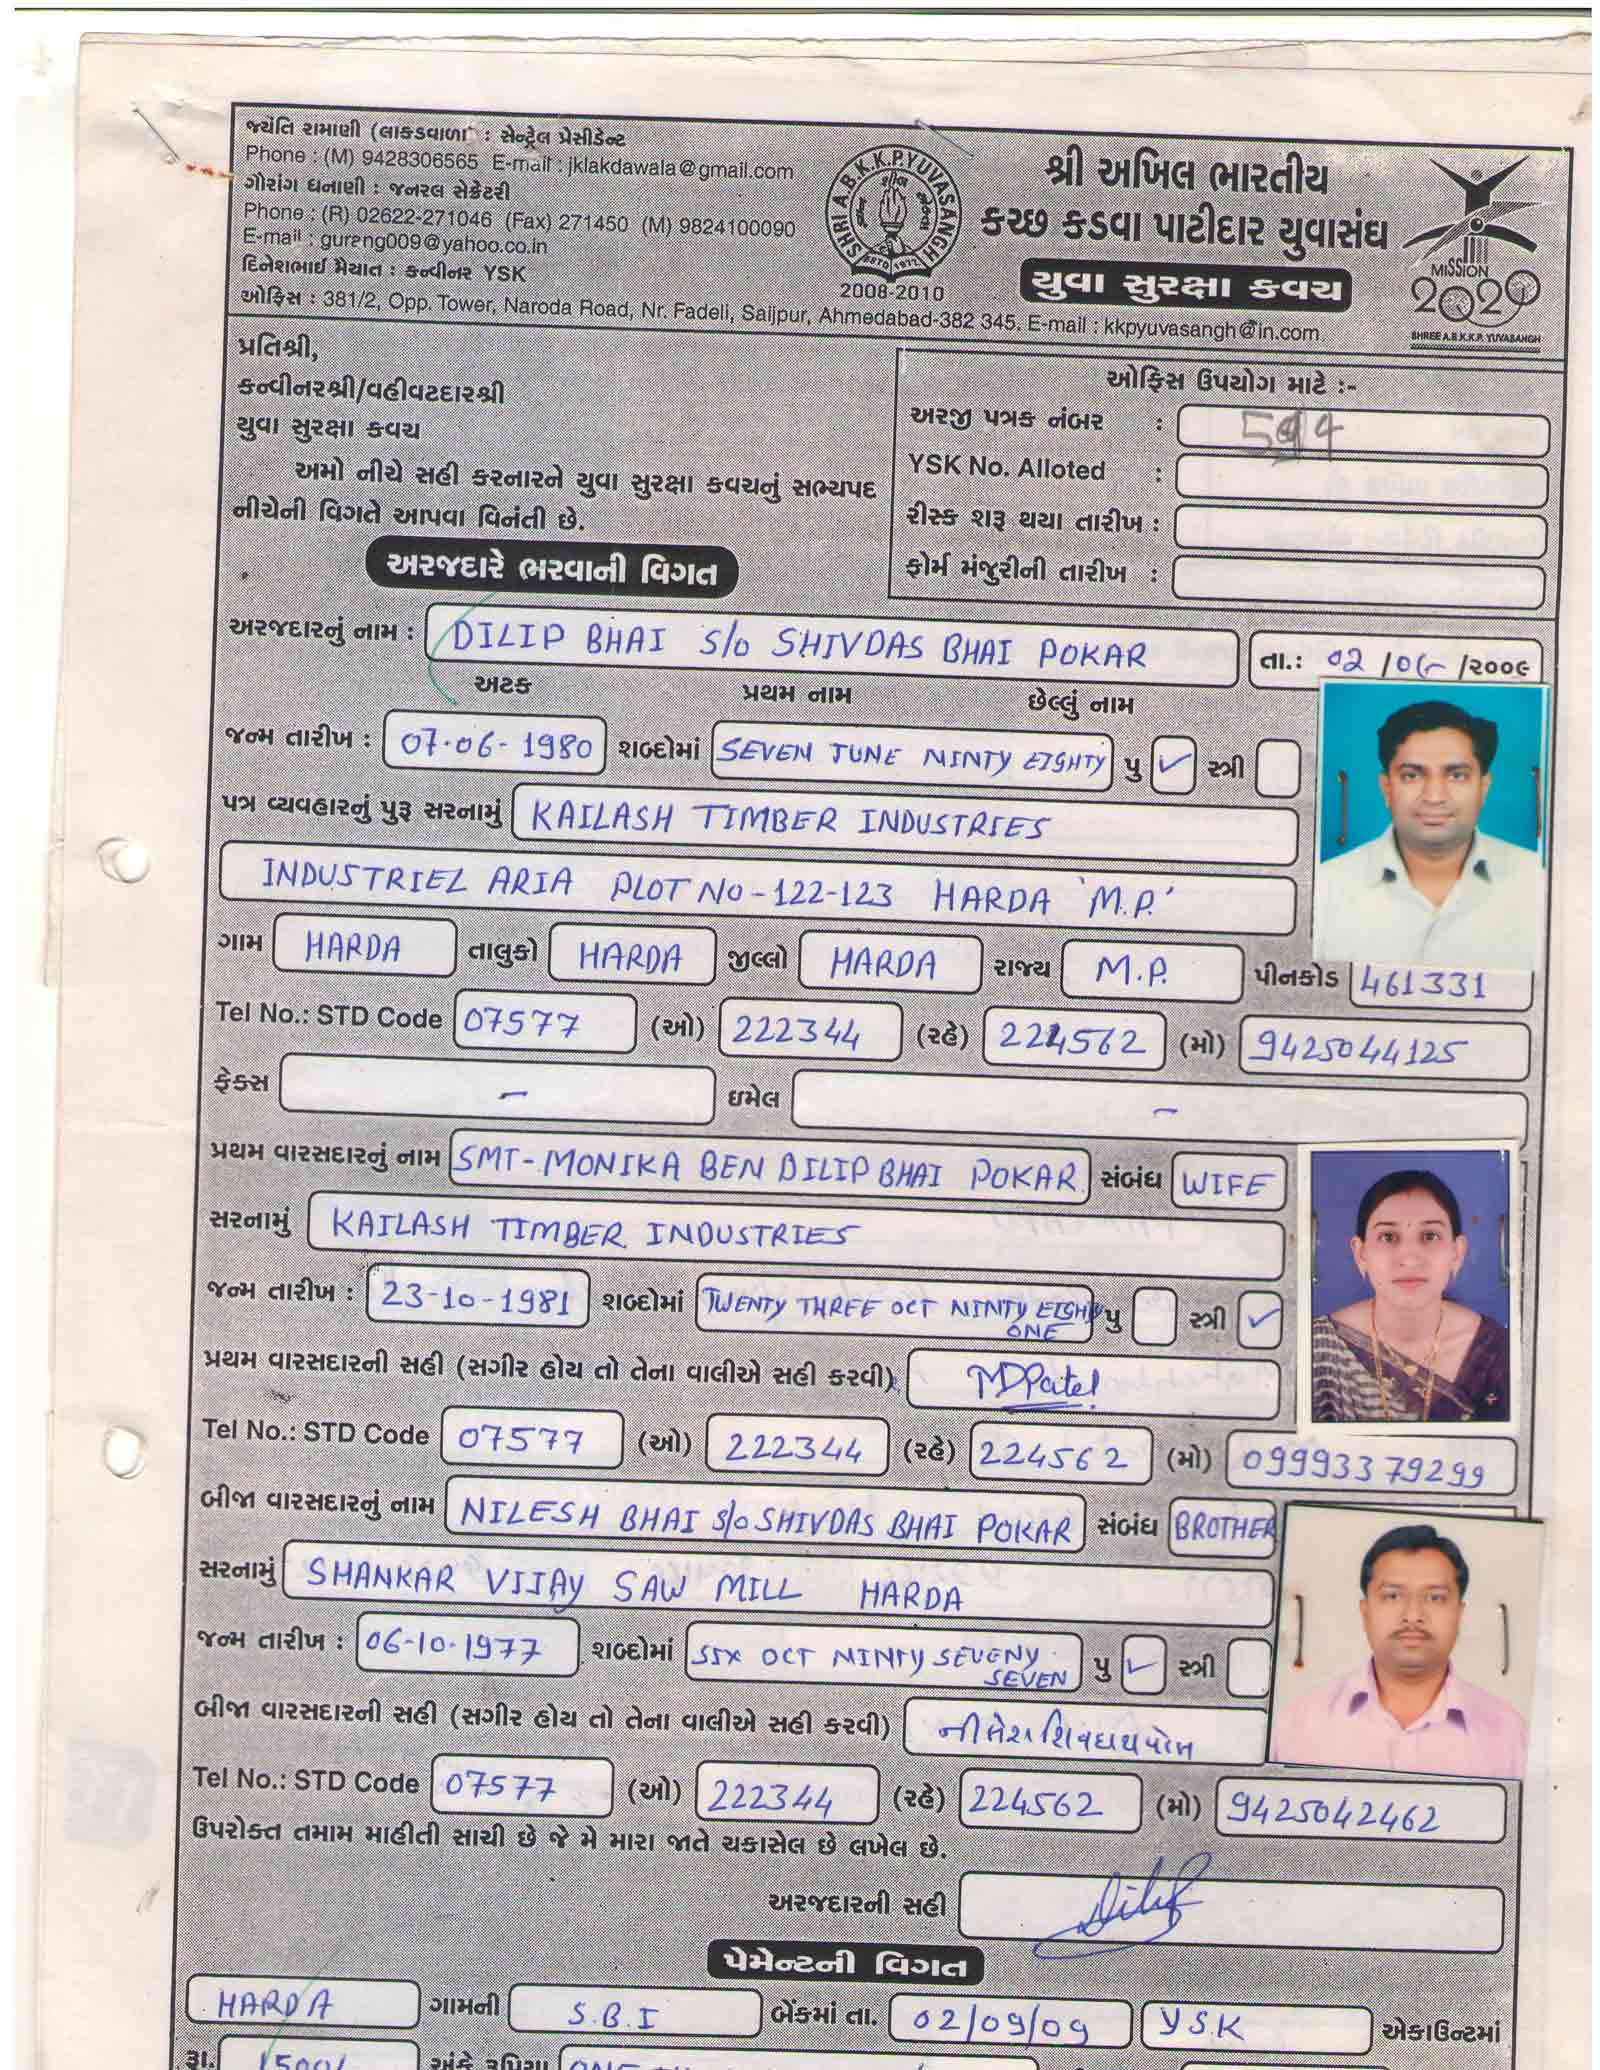 જ્યંતિ રામાણી (લાકડવાળા) : સેન્ટ્રેલ પ્રેસીડેન્ટ
Phone : (M) 9428306565 E-mail : jklakdawala@gmail.com
ગૌરાંગ ધનાણી : જનરલ સેક્રેટરી
Phone : (R) 02622-271046 (Fax) 271450 (M) 9824100090
E-mail : gurang009@yahoo.co.in
દિનેશભાઈ મૈયાત : કન્વીનર YSK
ઓફિસ : 381/2, Opp. Tower, Naroda Road, Nr. Fadeli, Saijpur, Ahmedabad-382 345. E-mail : kkpyuvasangh@in.com
SHRI A.B.K.K.P. YUVASANGH
ESTD 1972
2008-2010
શ્રી અખિલ ભારતીય
કચ્છ કડવા પાટીદાર યુવાસંઘ
યુવા સુરક્ષા કવચ
MISSION
2020
SHREE A.B.K.K.P. YUVASANGH
પ્રતિશ્રી,
કન્વીનરશ્રી/વહીવટદારશ્રી
યુવા સુરક્ષા કવચ
અમો નીચે સહી કરનારને યુવા સુરક્ષા કવચનું સભ્યપદ
નીચેની વિગતે આપવા વિનંતી છે.
ઓફિસ ઉપયોગ માટે :-
અરજી પત્રક નંબર :
YSK No. Alloted :
રીસ્ક શરૂ થયા તારીખ :
ફોર્મ મંજુરીની તારીખ :
અરજદારે ભરવાની વિગત
અરજદારનું નામ : DILIP BHAI S/o SHIVDAS BHAI POKAR તા.: 02 /09 /૨૦૦૯
અટક પ્રથમ નામ છેલ્લું નામ
જન્મ તારીખ : 07-06-1980 શબ્દોમાં SEVEN JUNE NINTY EIGHTY પુ ✓ સ્ત્રી
પત્ર વ્યવહારનું પુરૂ સરનામું KAILASH TIMBER INDUSTRIES
INDUSTRIEL ARIA PLOT NO-122-123 HARDA 'M.P.'
ગામ HARDA તાલુકો HARDA જીલ્લો HARDA રાજ્ય M.P. પીનકોડ 461331
Tel No.: STD Code 07577 (ઓ) 222344 (રહે) 224562 (મો) 9425044125
ફેક્સ - ઇમેલ -
પ્રથમ વારસદારનું નામ SMT-MONIKA BEN DILIP BHAI POKAR સંબંધ WIFE
સરનામું KAILASH TIMBER INDUSTRIES
જન્મ તારીખ : 23-10-1981 શબ્દોમાં TWENTY THREE OCT NINTY EIGHTY ONE પુ સ્ત્રી ✓
પ્રથમ વારસદારની સહી (સગીર હોય તો તેના વાલીએ સહી કરવી) MDPatel
Tel No.: STD Code 07577 (ઓ) 222344 (રહે) 224562 (મો) 09993379299
બીજા વારસદારનું નામ NILESH BHAI S/o SHIVDAS BHAI POKAR સંબંધ BROTHER
સરનામું SHANKAR VIJAY SAW MILL HARDA
જન્મ તારીખ : 06-10-1977 શબ્દોમાં SIX OCT NINTY SEVENY SEVEN પુ ✓ સ્ત્રી
બીજા વારસદારની સહી (સગીર હોય તો તેના વાલીએ સહી કરવી)
Tel No.: STD Code 07577 (ઓ) 222344 (રહે) 224562 (મો) 9425042462
ઉપરોક્ત તમામ માહીતી સાચી છે જે મે મારા જાતે ચકાસેલ છે લખેલ છે.
અરજદારની સહી Dilip
પેમેન્ટની વિગત
HARDA ગામની S.B.I બેંકમાં તા. 02/09/09 YSK એકાઉન્ટમાં
રૂા. અંકે રૂપિયા